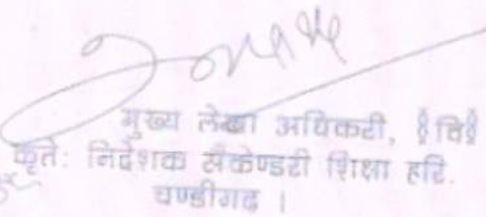 मुख्य लेखा अधिकरी, §वि§
कृते: निदेशक सैकेण्डरी शिक्षा हरि.
चण्डीगढ ।